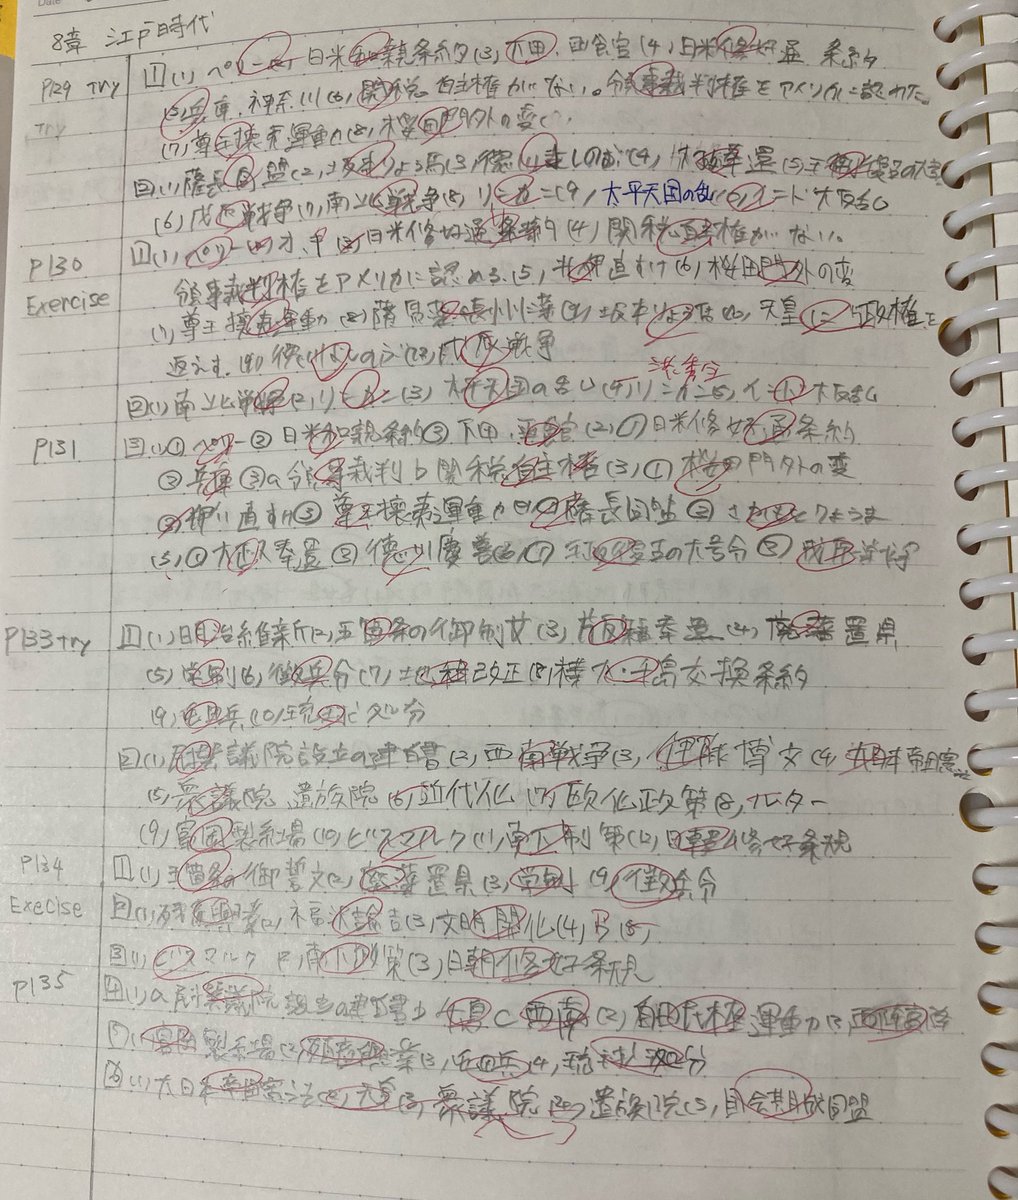 8章 江戸時代
P129 Try 1 (1) ペリー 日米和親条約 (3) 下田 (4) 日米修好通 条約
Try (5) 兵庫、神奈川 (6) 関税自主権がない。領事裁判権をアメリカに認めた。
(7) 尊王攘夷運動 (8) 桜田門外の変
2 (1) 薩長同盟 (2) 坂本りょう馬 (3) 徳川よしのぶ (4) 大政奉還 (5) 王政復古の大号令
(6) 戊辰戦争 (7) 南北戦争 (8) リンカーン (9) 太平天国の乱 (10) インド大反乱
P130 1 (1) ペリー (3) 日米修好通商条約 (4) 関税自主権がない。
Exercise 領事裁判権をアメリカに認める (5) 世直し (6) 桜田門外の変
(7) 尊王攘夷運動 (8) 薩摩藩 長州藩 (9) 坂本りょう馬 (10) 天皇に 政権を
返えす (11) 徳川よしのぶ (12) 戊辰戦争
洪秀全
2 (1) 南北戦争 (2) リンカーン (3) 太平天国の乱 (4) リンカーン (5) インド大反乱
P131 3 (1) ① ペリー ② 日米和親条約 ③ 下田 (2) ① 日米修好通商条約
② 兵庫 ③ a 領事裁判 b 関税自主権 (3) ① 桜田門外の変
③ 尊王攘夷運動 ① 薩長同盟 ② さかもとりょうま
(5) ① 大政奉還 ② 徳川慶喜 (6) ① 王政復古の大号令 ② 戊辰戦争
P133 try 1 (1) 明治維新 (2) 五箇条の御誓文 (3) 版籍奉還 (4) 廃藩置県
(5) 学制 (6) 徴兵令 (7) 地租改正 (8) 樺太・千島交換条約
(9) 屯田兵 (10) 琉球処分
2 (1) 民撰議院設立の建白書 (2) 西南戦争 (3) 伊藤博文 (4) 大日本帝国憲法
(5) 衆議院 遺族院 (6) 近代化 (7) 欧化政策 (8)
(9) 富岡製糸場 (10) ビスマルク (11) 南下制策 (12) 日朝修好条規
P134 1 (1) 五箇条の御誓文 (2) 廃藩置県 (3) 学制 (4) 徴兵令
Execise 2 (1) 殖産興業 (2) 福沢諭吉 (3) 文明開化 (4) B (5)
3 (1) ビスマルク (2) 南下政策 (3) 日朝修好条規
P135 4 (1) a 民撰議院設立の建白書 b c 西南 (2) 自由民権運動 (3)
富岡製糸場 (2) 殖産興業 (3) 屯田兵 (4) 琉球処分
(1) 大日本帝国憲法 (2) 天皇 (3) 衆議院 遺族院 (5) 国会期成同盟